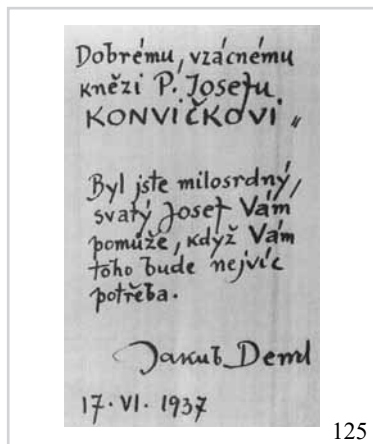 Dobrému, vzácnému
knězi P. Josefu
KONVIČKOVI „
Byl jste milosrdný,
svatý Josef Vám
pomůže, když Vám
toho bude nejvíc
potřeba.
Jakub Deml
17. VI. 1937
125